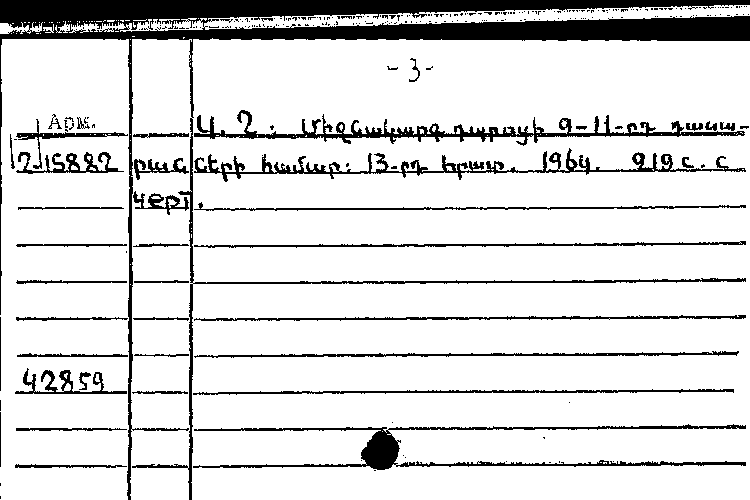 -3-
Арм. Ч. 2: Միջնակարգ դպրոցի 9-11-րդ դասա-
2-15882 րան ների համար: 13-րդ հրատ. 1964. 219 с. с
черт.
42859